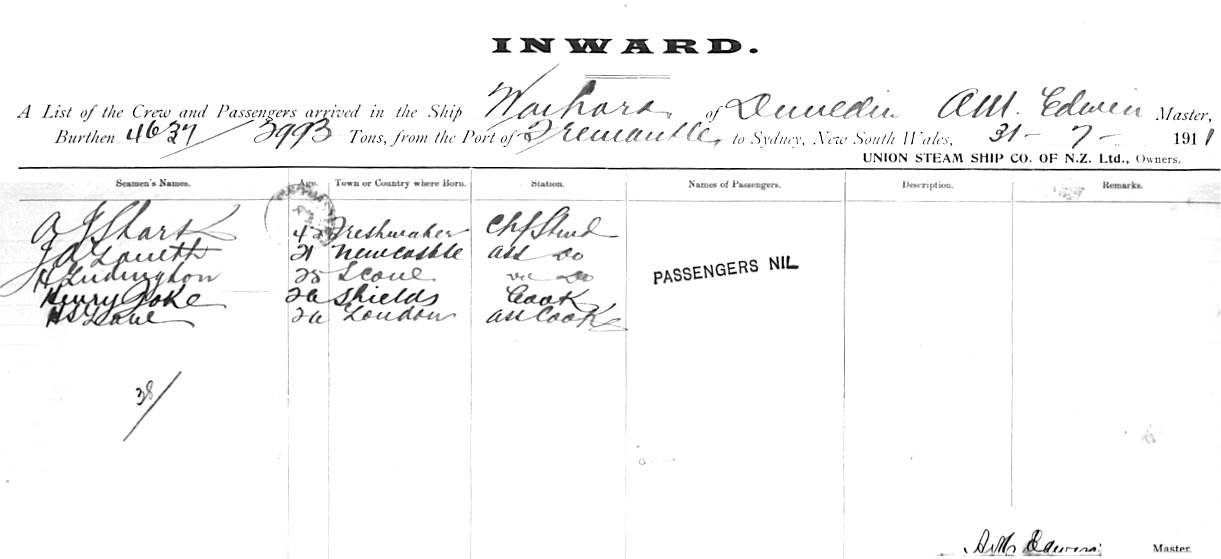 INWARD.
A List of the Crew and Passengers arrived in the Ship Waihora of Dunedin A.M. Edwin Master,
Burthen 4637/2993 Tons, from the Port of Fremantle, to Sydney, New South Wales, 31-7-1911
UNION STEAM SHIP CO. OF N.Z. Ltd., Owners.
Seamen's Names. Age. Town or Country where Born. Station. Names of Passengers. Description. Remarks.
42 Freshwater Chf Stwd
21 Newcastle Ass Do
25 Do
Henry 26 Shields Cook
H S 20 London Ass Cook
PASSENGERS NIL
38/
A.M. Edwin Master.